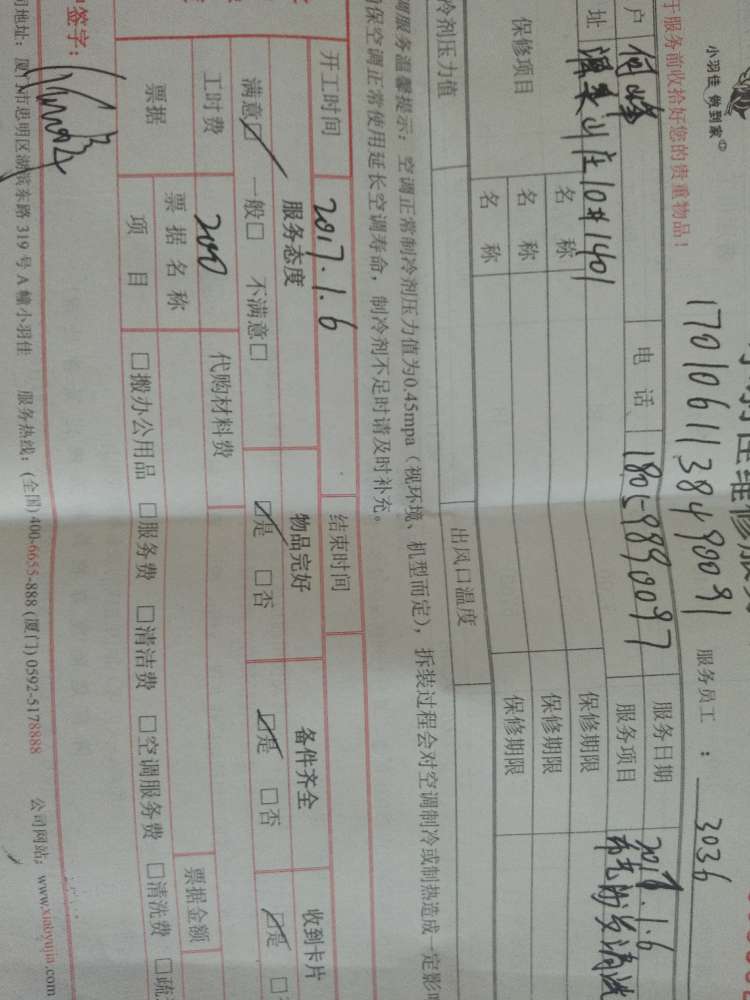 小羽佳 做到家
于服务前收拾好您的贵重物品！
1701061138490091
服务员工：3036
户 何峰 电话 18059890097 服务日期 2017.1.6
址 10#1401 服务项目
保修项目 名称 保修期限
名称 保修期限
名称 保修期限
冷剂压力值 出风口温度
调服务温馨提示：空调正常制冷剂压力值为0.45mpa（视环境、机型而定），拆装过程会对空调制冷或制热造成一定影
保空调正常使用延长空调寿命，制冷剂不足时请及时补充。
开工时间 2017.1.6 结束时间
服务态度 物品完好 备件齐全 收到卡片
满意☑ 一般□ 不满意□ ☑是 □否 ☑是 □否 ☑是
工时费 200 代购材料费
票据 票据名称 票据金额
项目 □搬办公用品 □服务费 □清洁费 □空调服务费 □清洗费 □疏
签字：
司地址：厦门市思明区湖滨东路319号A幢小羽佳 服务热线：(全国)400-6655-888 (厦门)0592-5178888 公司网站：www.xiaoyujia.com